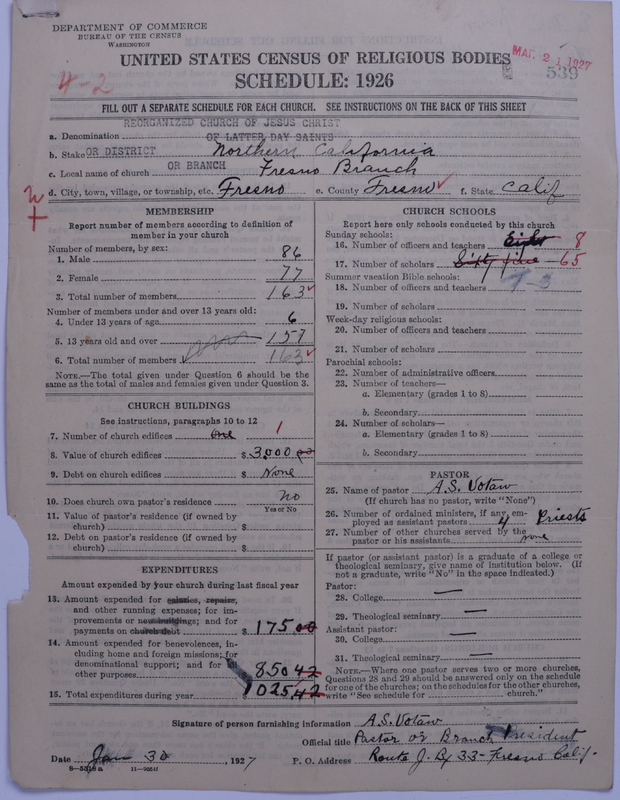 DEPARTMENT OF COMMERCE
BUREAU OF THE CENSUS
WASHINGTON
UNITED STATES CENSUS OF RELIGIOUS BODIES
MAR 21 1927
539
4-2
SCHEDULE: 1926
FILL OUT A SEPARATE SCHEDULE FOR EACH CHURCH. SEE INSTRUCTIONS ON THE BACK OF THIS SHEET
REORGANIZED CHURCH OF JESUS CHRIST
a. Denomination OF LATTER DAY SAINTS
b. Stake OR DISTRICT Northern California
c. Local name of church OR BRANCH Fresno Branch
d. City, town, village, or township, etc. Fresno e. County Fresno f. State Calif
MEMBERSHIP
Report number of members according to definition of
member in your church
Number of members, by sex:
1. Male 86
2. Female 77
3. Total number of members 163
Number of members under and over 13 years old:
4. Under 13 years of age 6
5. 13 years old and over 157
6. Total number of members 163
NOTE.—The total given under Question 6 should be
same as the total of males and females given under Question 3.
CHURCH BUILDINGS
See instructions, paragraphs 10 to 12
7. Number of church edifices One 1
8. Value of church edifices $ 3000 00
9. Debt on church edifices $ None
10. Does church own pastor's residence No
Yes or No
11. Value of pastor's residence (if owned by
church) $
12. Debt on pastor's residence (if owned by
church) $
EXPENDITURES
Amount expended by your church during last fiscal year
13. Amount expended for salaries, repairs,
and other running expenses; for im-
provements or new buildings; and for
payments on church debt $ 175 00
14. Amount expended for benevolences, in-
cluding home and foreign missions; for
denominational support; and for all
other purposes 850 42
15. Total expenditures during year $ 1025.42
CHURCH SCHOOLS
Report here only schools conducted by this church
Sunday schools:
16. Number of officers and teachers Eight 8
17. Number of scholars Sixty five 65
Summer vacation Bible schools:
18. Number of officers and teachers
19. Number of scholars
Week-day religious schools:
20. Number of officers and teachers
21. Number of scholars
Parochial schools:
22. Number of administrative officers
23. Number of teachers—
a. Elementary (grades 1 to 8)
b. Secondary
24. Number of scholars—
a. Elementary (grades 1 to 8)
b. Secondary
PASTOR
25. Name of pastor A.S. Votaw
(If church has no pastor, write "None")
26. Number of ordained ministers, if any, em-
ployed as assistant pastors 4 Priests
27. Number of other churches served by the
pastor or his assistants none
If pastor (or assistant pastor) is a graduate of a college or
theological seminary, give name of institution below. (If
not a graduate, write "No" in the space indicated.)
Pastor:
28. College —
29. Theological seminary —
Assistant pastor:
30. College —
31. Theological seminary —
NOTE.—Where one pastor serves two or more churches,
Questions 28 and 29 should be answered only on the schedule
for one of the churches; on the schedules for the other churches,
write "See schedule for church."
Signature of person furnishing information A.S. Votaw
Official title Pastor or Branch President
Date Jan 30, 1927 P. O. Address Route J. Bx 33- Fresno Calif.
8-5318a 11-9051